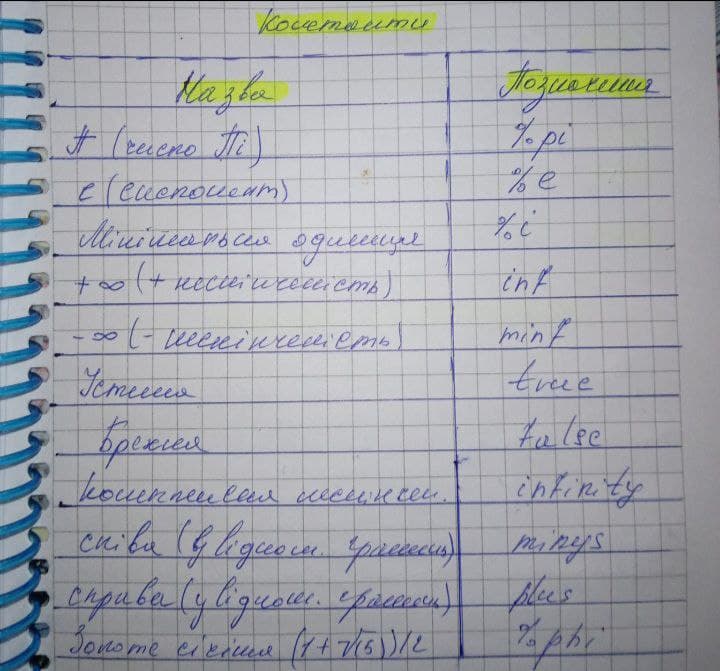 Константи
Назва Позначення
π (число Пі) %pi
e (експонент) %e
Мінімальня одиниця %i
+∞ (+ нескінченість) inf
-∞ (- нескінченість) minf
Істиня true
Брехня false
Комплексня нескінчен. infinity
зліва (у віднош. границ) minys
справа (у віднош. границ) plus
Золоте січіня (1+√(5))/2 %phi